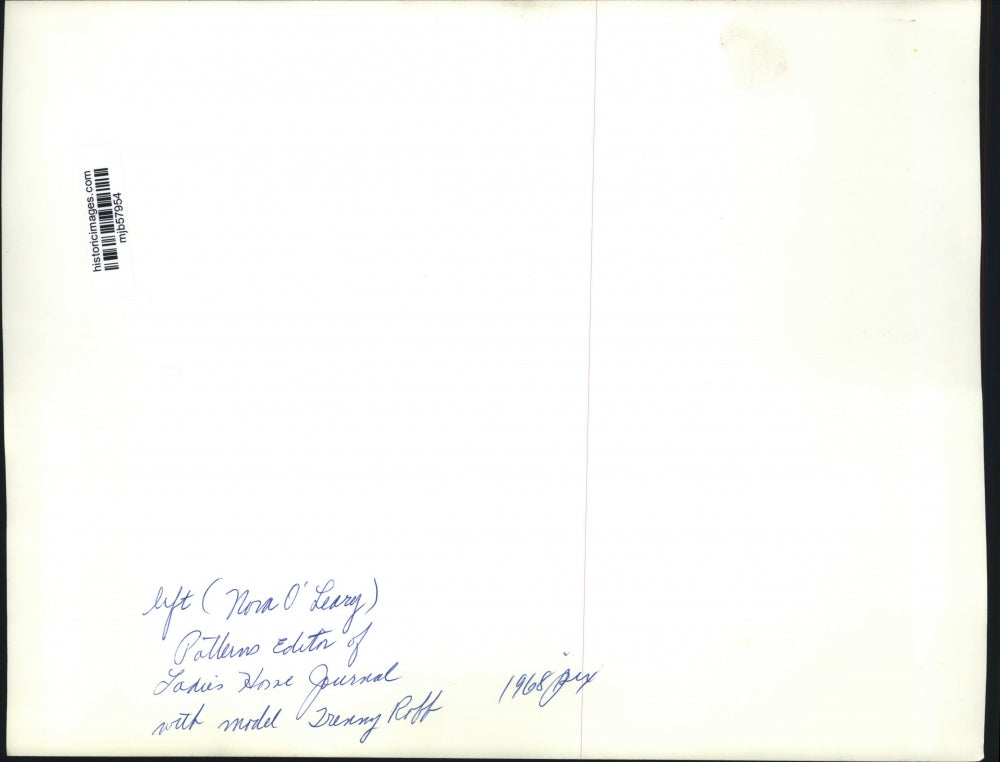 historicimages.com
mjb57954
left (Nora O'Leary)
Patterns Editor of
Ladies Home Journal
with model Trenny Robb
1968